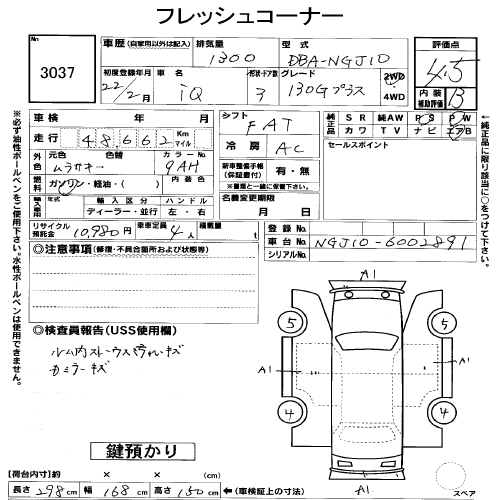 フレッシュコーナー
No.
3037
車歴 (自家用以外は記入)
排気量
1300
型式
DBA-NGJ10
評価点
4.5
初度登録年月
22/2月
車名
iQ
形状・ドア数
3
グレード
130Gプラス
2WD
4WD
内装
補助評価
B
車検 年 月
シフト
FAT
純正品
SR 純AW PS PW
カワ TV ナビ エアB
走行
48662
Km
マイル
冷房
AC
セールスポイント
外色
元色
ムラサキ
色替
カラーNo.
9AH
燃料
ガソリン・軽油・( )
内装色
新車整備手帳
(保証書付)
有・無
※重量と一緒に保管下さい。
輸入車用
年式
輸入区分
ディーラー・並行
ハンドル
左・右
名義変更期限
月 日
リサイクル
預託金
10,980円
乗車定員
4人
積載量
t
登録No.
車台No.
NGJ10-6002891
シリアルNo.
◎注意事項(修復・不具合箇所および状態等)
◎検査員報告(USS使用欄)
ルーム内ストレージウスヨゴレ・キズ
カミラーキズ
鍵預かり
A1
5
5
A1
A1
4
4
A1
スペア
[荷台内寸]約 × × (cm)
長さ 298 cm 幅 168 cm 高さ 150 cm ←(車検証上の寸法)
※必ず油性ボールペンをご使用下さい。水性ボールペンは使用できません。
※純正品に限り該当に○をつけて下さい。